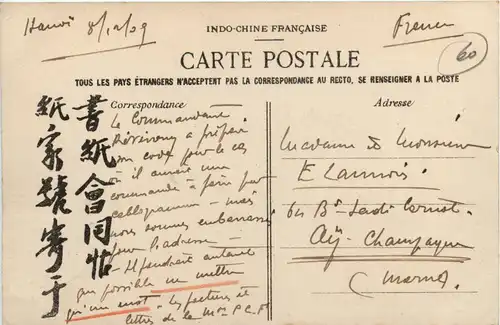 Hanoi 8/12/09
INDO-CHINE FRANÇAISE
France
CARTE POSTALE
60
TOUS LES PAYS ÉTRANGERS N'ACCEPTENT PAS LA CORRESPONDANCE AU RECTO, SE RENSEIGNER A LA POSTE
Correspondance
Le Commandant
a préparé
son code pour le cas
où il aurait une
commande à faire par
cablogramme - mais
nous sommes embarrassés
pour l'adresse -
Il faudrait autant
que possible ne mettre
qu'un mot - les factures et
lettres de la Mon P C F
書紙會同帖
紙家號寄于
Adresse
Madame & Monsieur
E Lannois
Bd Sadi Carnot
Aÿ-Champagne
(Marne)